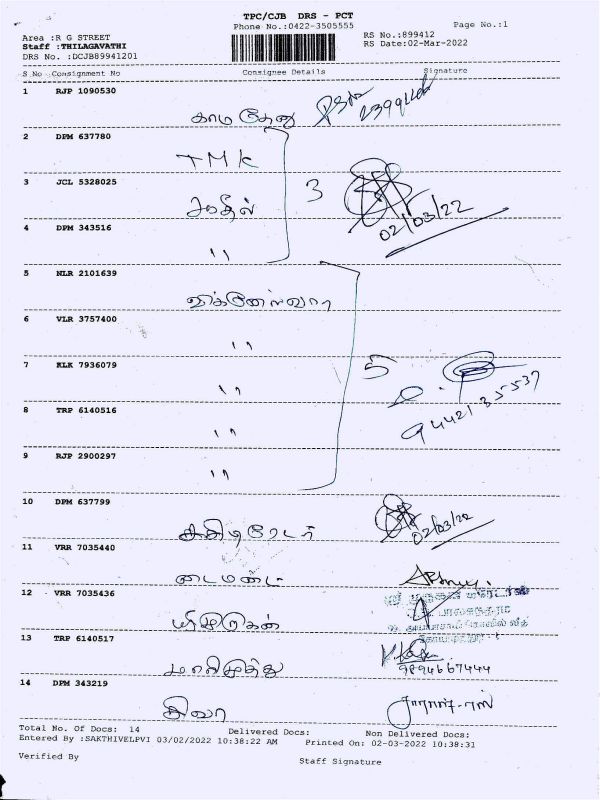 TPC/CJB DRS - PCT
Phone No.:0422-3505555
Page No.:1
Area :R G STREET
RS No.:899412
Staff :THILAGAVATHI
RS Date:02-Mar-2022
DRS No. :DCJB89941201
S.No Consignment No Consignee Details Signature
1 RJP 1090530
காமதேனு
2 DPM 637780
TMK
3 JCL 5328025
3
02/03/22
4 DPM 343516
"
5 NLR 2101639
விக்னேஸ்வரா
6 VLR 3757400
"
7 KLK 7936079
"
5
9442135537
8 TRP 6140516
"
9 RJP 2900297
"
10 DPM 637799
02/03/22
11 VRR 7035440
டைமண்ட்
12 VRR 7035436
13 TRP 6140517
மாரிமுத்து
9894667444
14 DPM 343219
Total No. Of Docs: 14 Delivered Docs: Non Delivered Docs:
Entered By :SAKTHIVELPVI 03/02/2022 10:38:22 AM Printed On: 02-03-2022 10:38:31
Verified By
Staff Signature